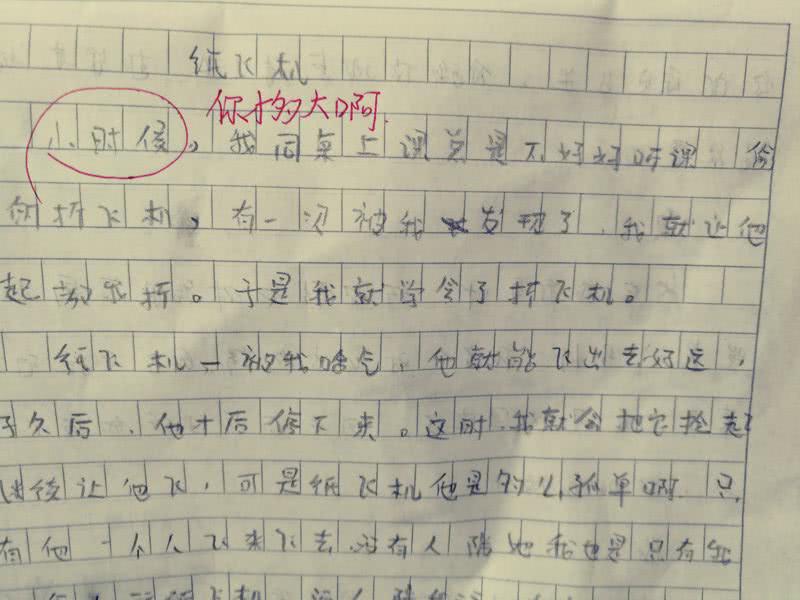 纸飞机
你才多大啊.
小时候，我同桌上课总是不好好听课 偷
偷折飞机，有一次被我发现了，我就让他
起教我折。于是我就学会了折飞机。
纸飞机一被我哈气，他就能飞出去好远，
久后，他才后停下来。这时，我就会把它捡起
继续让他飞，可是纸飞机他是多么孤单啊 只
有他一个人飞来飞去，没有人陪他我也是只有